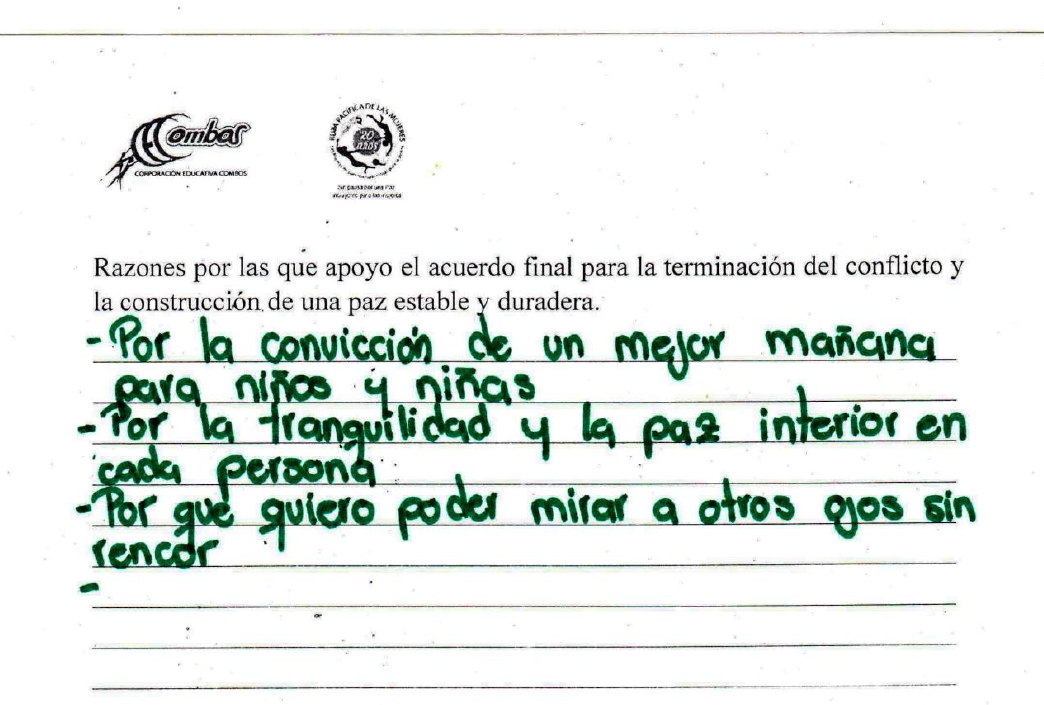 Combos
CORPORACIÓN EDUCATIVA COMBOS
RUTA PACÍFICA DE LAS MUJERES
20
AÑOS
Razones por las que apoyo el acuerdo final para la terminación del conflicto y
la construcción de una paz estable y duradera.
- Por la convicción de un mejor mañana
para niños y niñas
- Por la tranquilidad y la paz interior en
cada persona
- Por qué quiero poder mirar a otros ojos sin
rencor
-